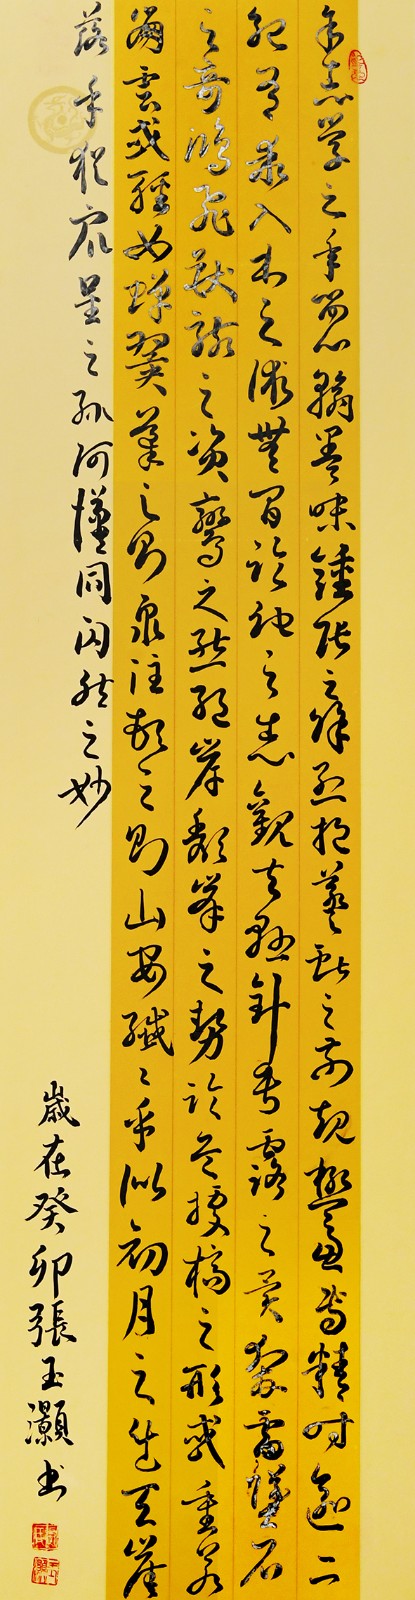 余志學之年留心翰墨味鍾張之餘烈挹羲獻之前規極慮專精時逾二
紀有乖入木之術無間臨池之志觀夫懸針垂露之異奔雷墜石
之奇鴻飛獸駭之資鸞之態絕岸頹峯之勢臨危據槁之形或重若
崩雲或輕如蟬翼導之則泉注頓之則山安纖〻乎似初月之出天崖
落乎猶眾星之列河漢同自然之妙
歲在癸卯張玉灝書